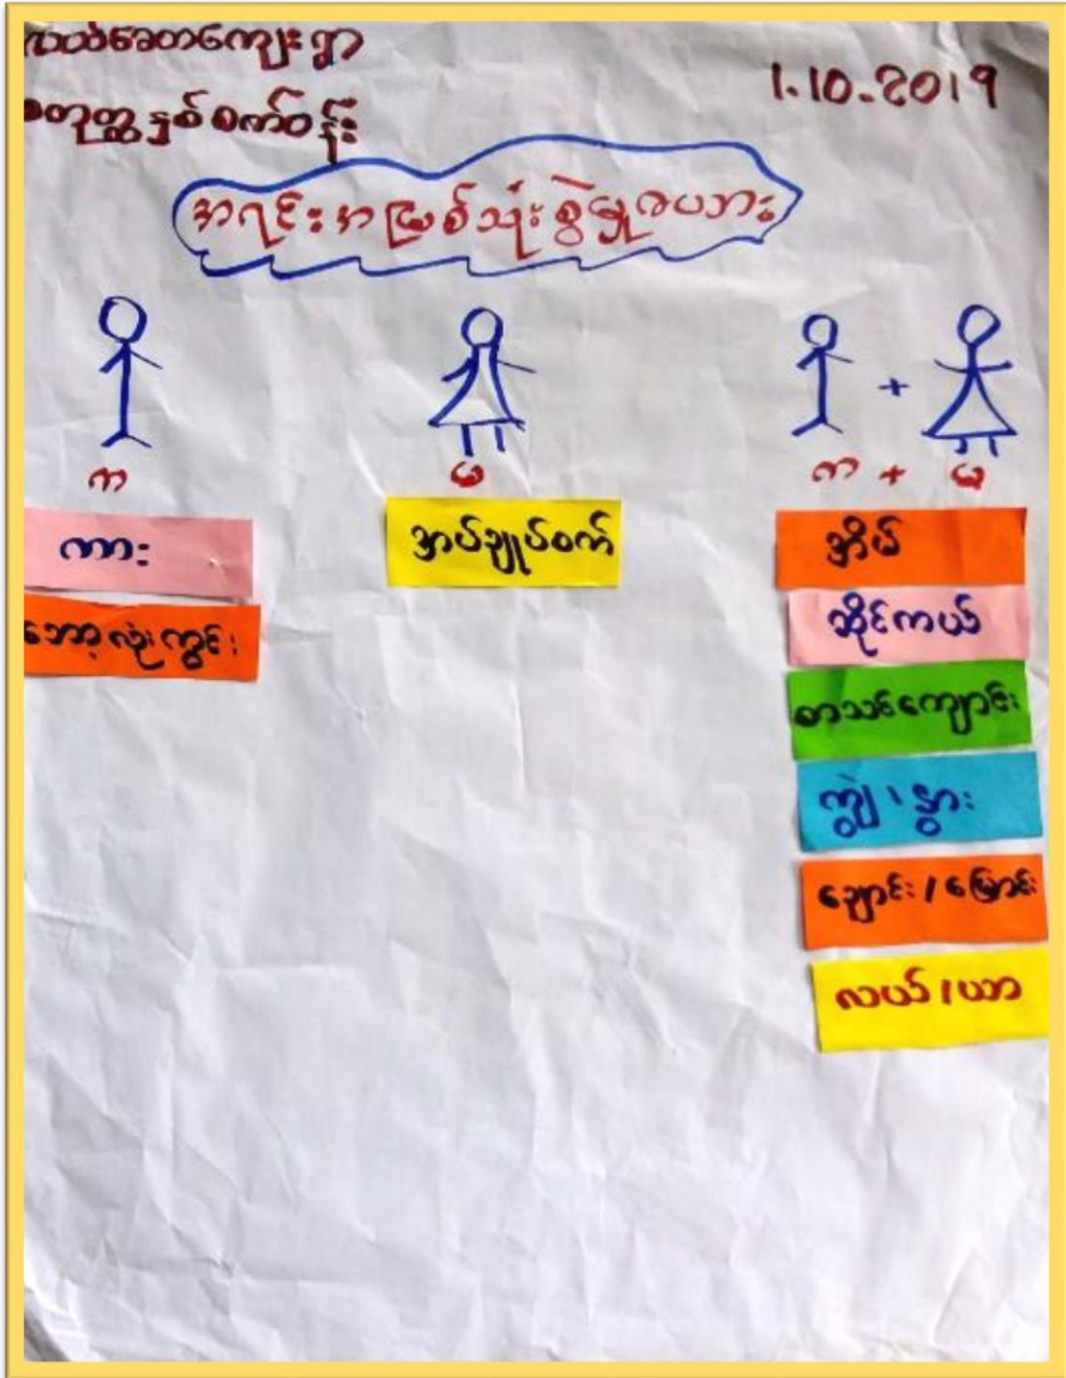 လယ်ခေတကျေးရွာ
စတုတ္ထနှစ်စက်ဝန်း
1.10.2019
အရင်းအမြစ်သုံးစွဲမှုဇယား
က
မ
က + မ
ကား
ဘောလုံးကွင်း
အပ်ချုပ်စက်
အိမ်
ဆိုင်ကယ်
စာသင်ကျောင်း
ကျွဲ၊ နွား
ချောင်း/မြောင်း
လယ်/ယာ